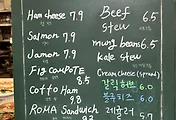 Ham cheese 7.9
Salmon 7.9
Jamon 7.9
Fig compote 8.5
Cotto Ham 9.8
ROMA Sandwich
Beef stew 6.5
mung beans
Kale stew 6.5
Cream Cheese (spread)
갈릭허브 6.0
블루치즈 6.0